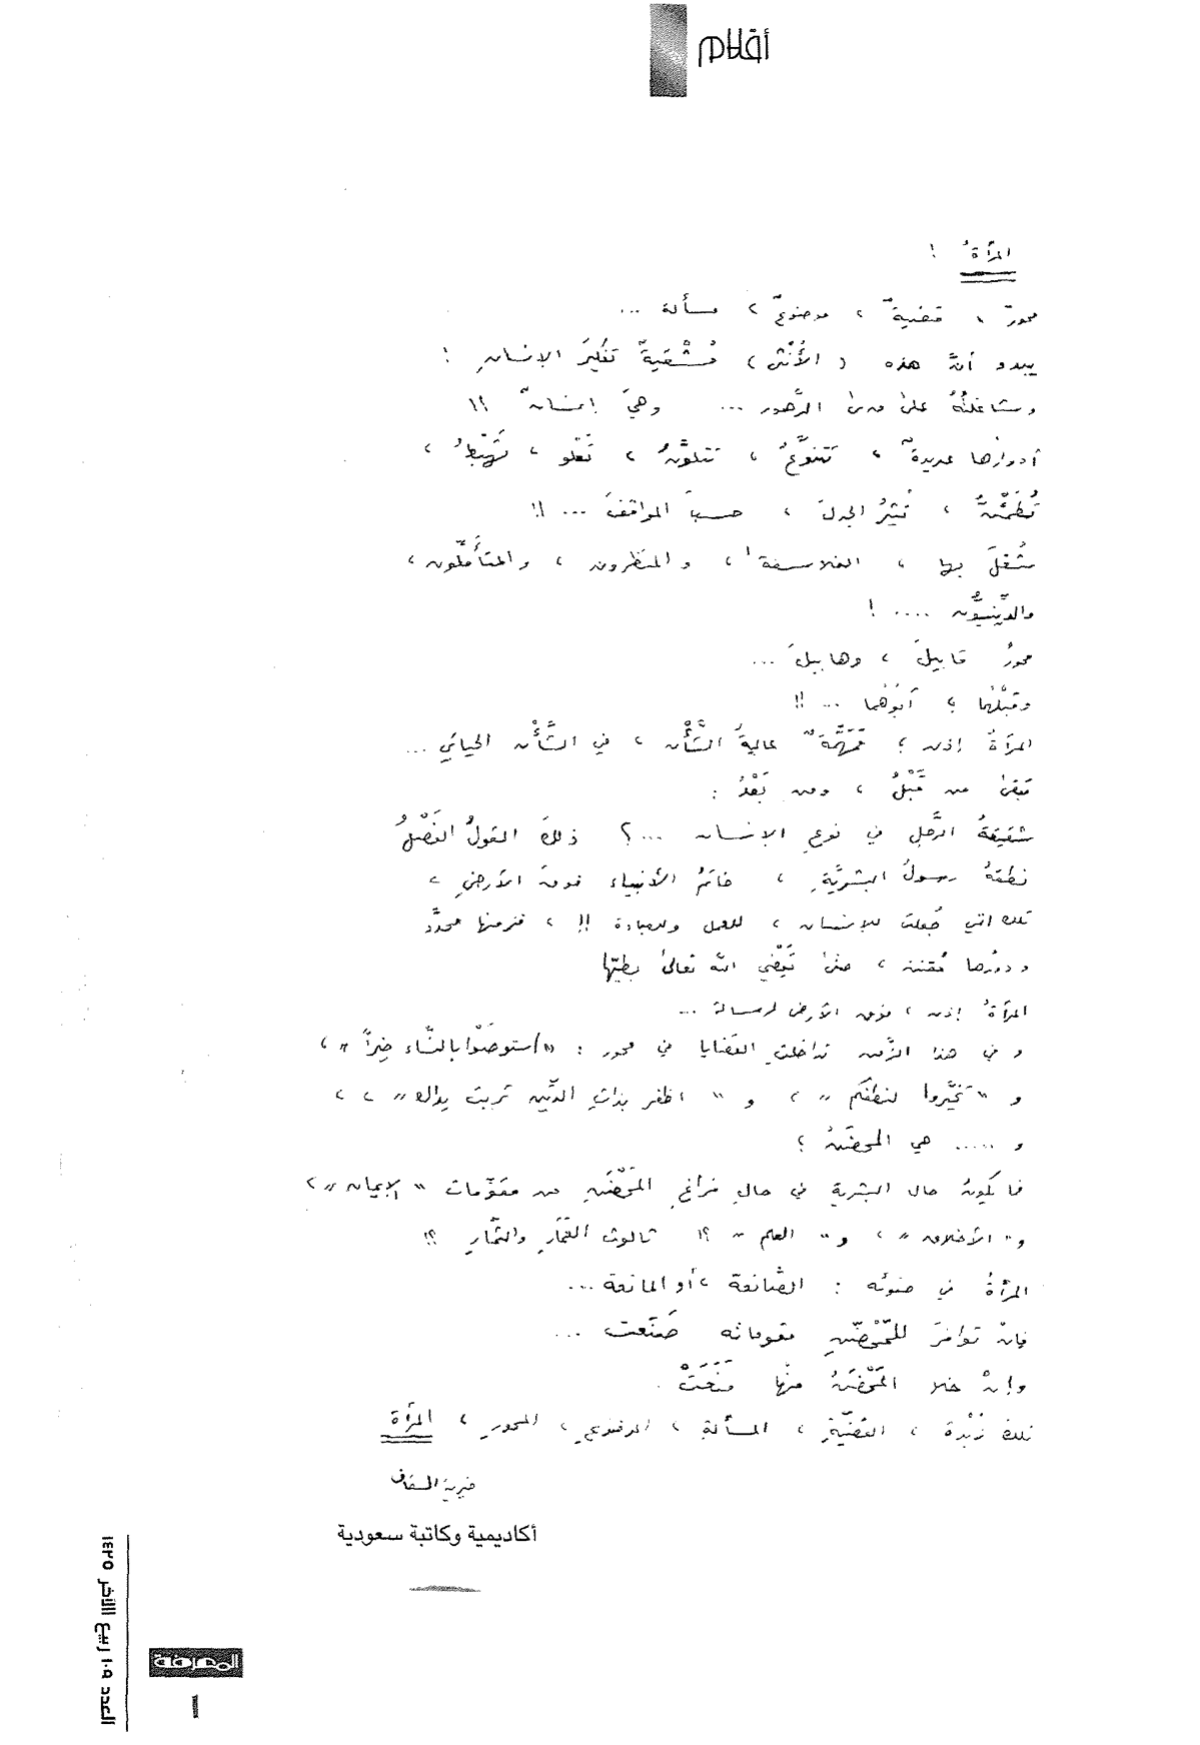 أقلام
المرأةُ !
محورٌ ، قضيةٌ ، موضوعٌ ، مسألة ...
يبدو أنَّ هذه ( الأُنثى ) مُشْقيةٌ تفكيرَ الإنسانِ !
وشاغلتُهُ على مدى الدُّهور ... وهيَ إنسانٌ ؟!
أدوارُها عديدةٌ ، تتنوَّعُ ، تتلوَّنُ ، تَعْلو ، تَهْبِطُ ،
تُطَمْئنُ ، تُثيرُ الجدلَ ، حسبَ المواقفَ ... !!
شُغلَ بها ، الفلاسفةُ ، والمنظرون ، والمتأمّلون ،
والدِّينيُّون .... !
محورُ قابيلَ ، وهابيلَ ...
وقَبْلَهُما ؛ أبَوُهُما ... !!
المرأةُ إذن ؛ مُهِمَّةٌ عاليةُ الشَّأْن ، في الشَّأْن الحياتي ...
تبقى من قَبْلُ ، ومن بَعْدُ :
شقيقةُ الرَّجلِ في نوعِ الإنسان ...؟ ذلكَ القولُ الفَصْلُ
نطقهُ رسولُ البشريَّةِ ، خاتمُ الأنبياء فوقَ الأرضِ ،
تلك التي جُعلت للإنسان ، للعمل وللعبادة !! ، فزمنها محدَّد
ودورُها مُقنن ، متى يَقْضي الله تعالى بطيّها
المرأةُ إذن ، فوق الأرض لرسالة ...
وفي هذا الزَّمن تداخلتِ القضايا في محور : «استوصَوْا بالنّساء خيراً» ،
و "تخيَّروا لنطفكم" ، و "اظفر بذاتِ الدِّين تربت يداك" ، ،
و ..... هي المحضَنُ ؟
فما يكونُ حال البشرية في حالِ فراغِ المَحْضَنِ من مقوّمات "الإيمان" ،
و"الأخلاق" ، و"العلم" ؟! ثالوث العَمَارِ والثّمارِ ؟!
المرأةُ في ضوئه : الصَّانعة ، أو المانعة ...
فإنْ توافرَ للمَحْضَنِ مقوماته صَنَعت ...
وإنْ خلا المَحْضَنُ منها مَنَعَتْ .
تلك زُبْدة ، القضيَّةِ ، المسألةِ ، الموضوعِ ، المحورِ ، المرأة
خيرية السقاف
أكاديمية وكاتبة سعودية
العدد ١٠٩ ربيع الآخر ١٤٢٥
المعرفة
١